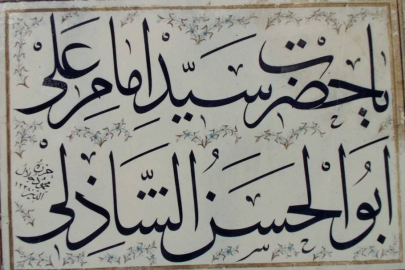 يا حضرت سيد امام علي
ابو الحسن الشاذلي